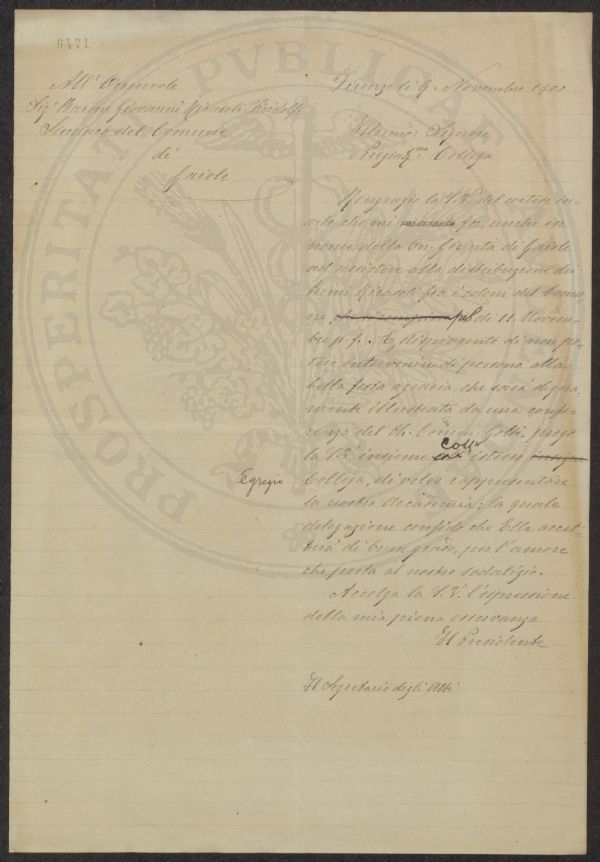 6471
All' Onorevole
Sig. Barone Giovanni Ricasoli Firidolfi
Sindaco del Comune
di
Gaiole
Firenze li 9. Novembre 1900
Illustrmo: Signore
Pregiatmo: Collega
Ringrazio la S.V. del cortese in-
vito che mi fa, anche in
nome della On. Giunta di Gaiole
ad assistere alla distribuzione dei
Premi Ricasoli fra i coloni del Comu-
ne pel dì 11. Novem-
bre p.f. E, dispiacente di non po-
tere intervenire di persona alla
bella festa agraria, che sarà degna-
mente illustrata da una confe-
renza del Ch. Comm. prego
la S.V. insieme coll' istesso
Egregio
Collega, di voler rappresentare
la nostra Accademia; la quale
delegazione confido che Ella accet-
terà di buon grado, per l'amore
che porta al nostro sodalizio.
Accolga la S.V. l'espressione
della mia piena osservanza
Il Presidente
Il Segretario degli Atti
PROSPERITATI PUBLICAE